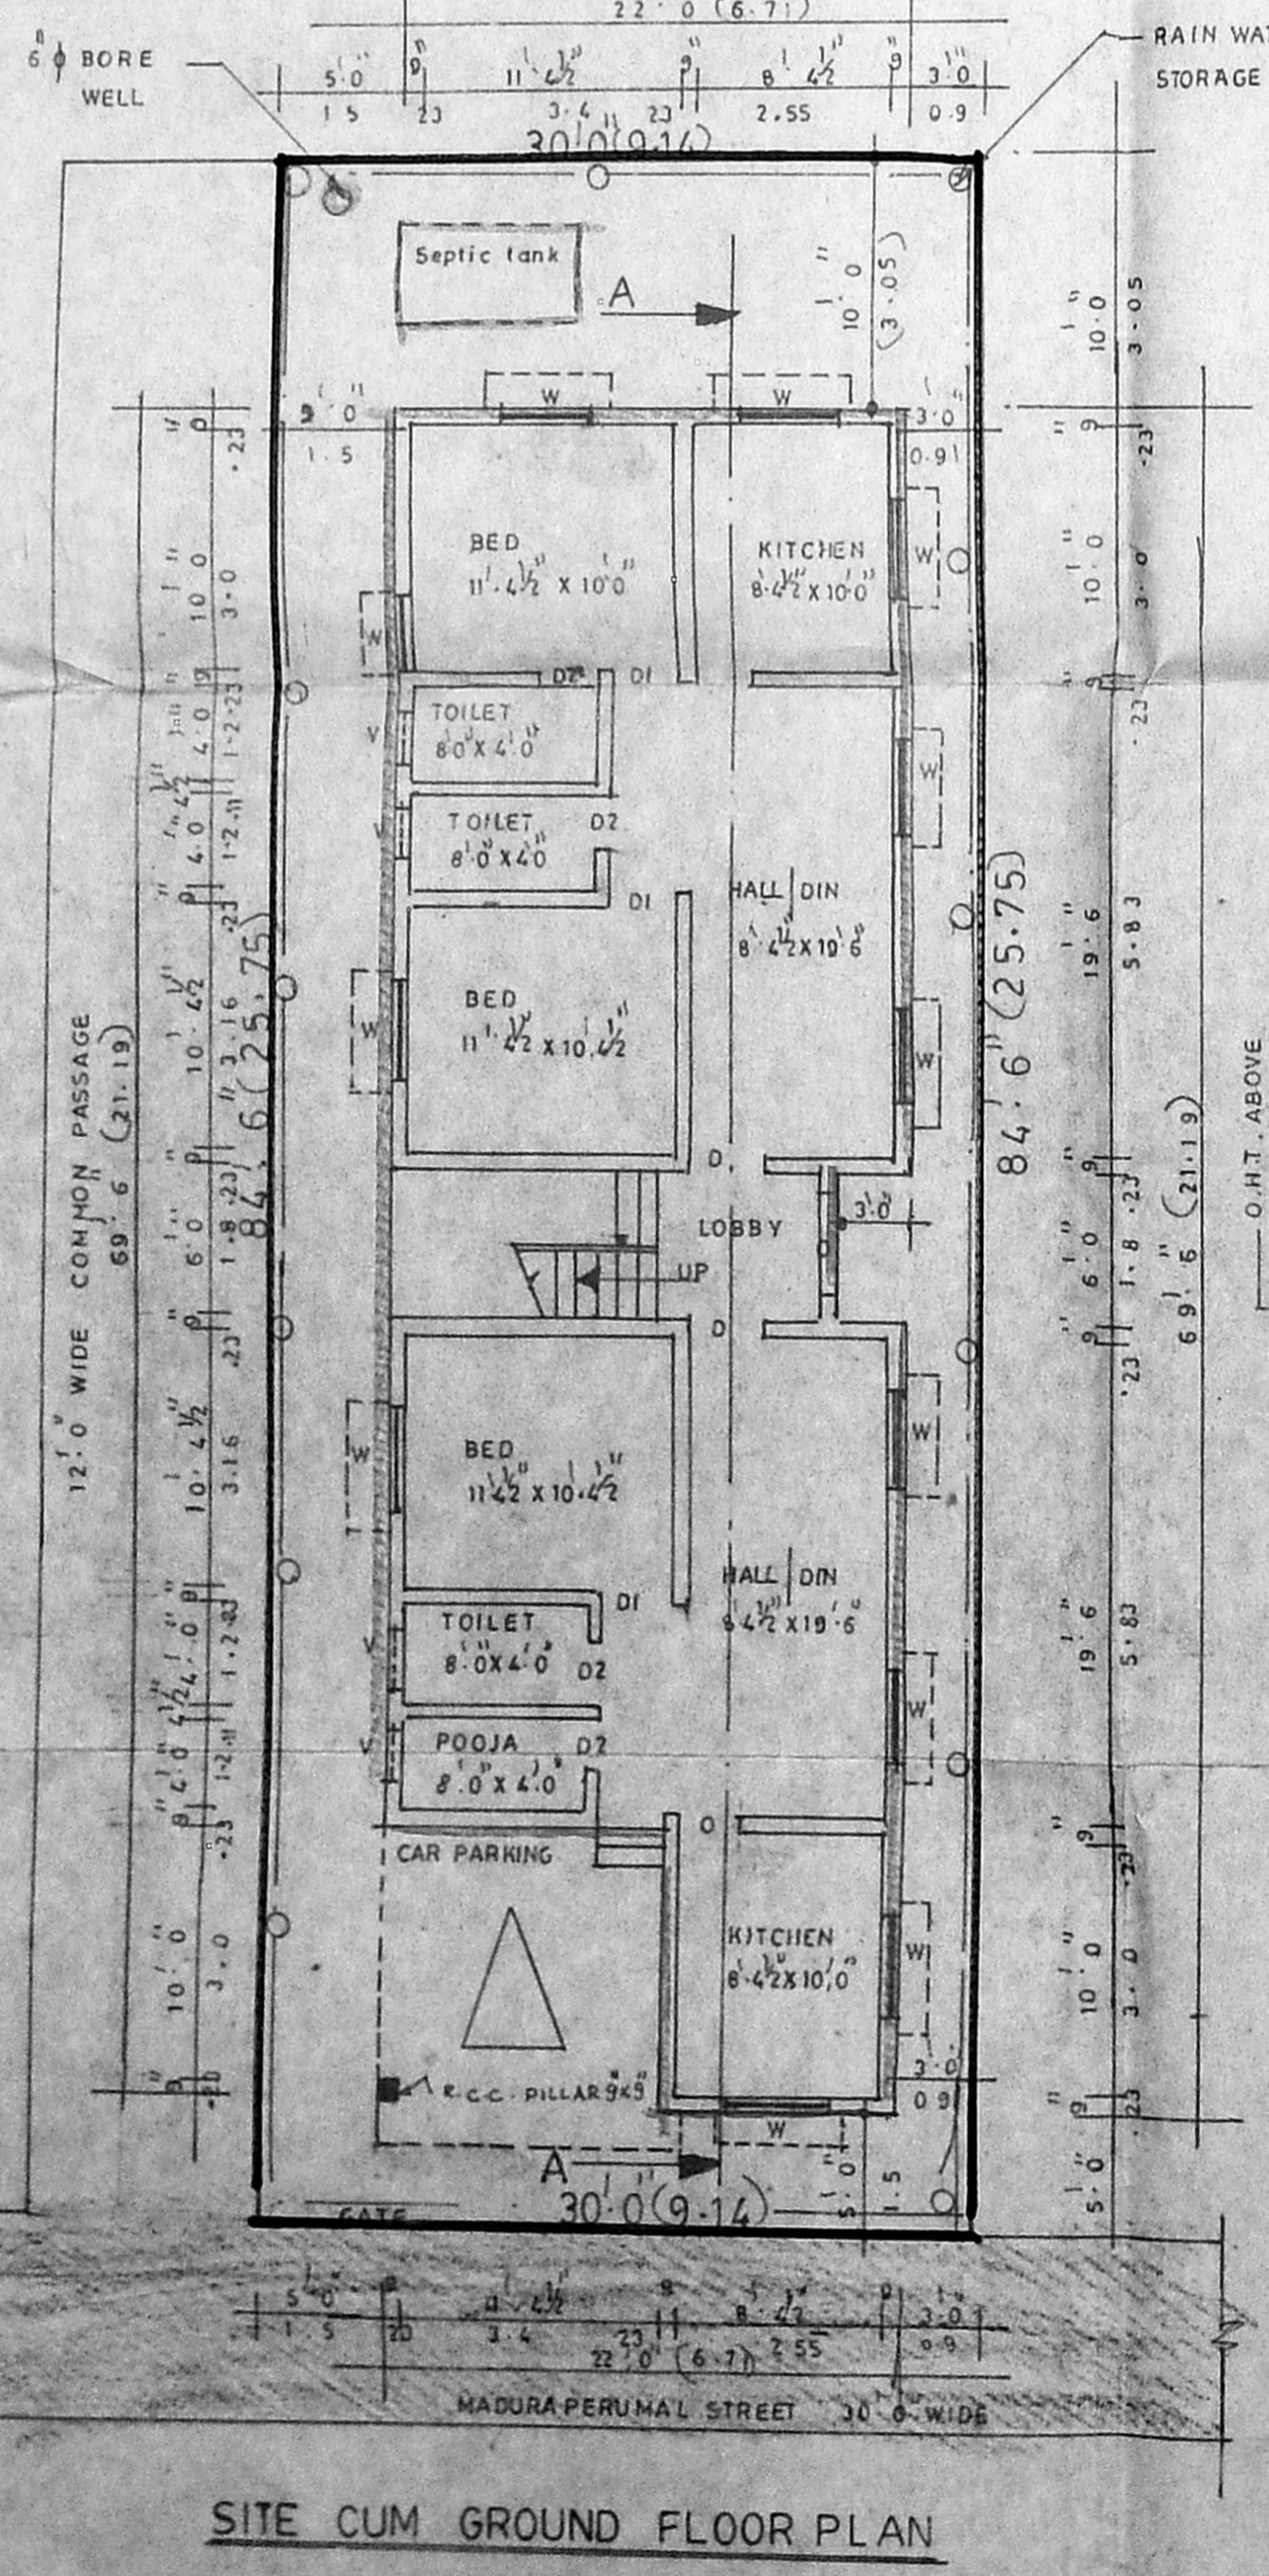 22'0" (6.71)
6"ϕ BORE
WELL
RAIN WAT
STORAGE
5'0" 9" 11'4½" 9" 8'4½" 9" 3'0"
1.5 23 3.4 23 2.55 0.9
30'0"(9.14)
Septic tank
A
10'0"
(3.05)
10'0"
3.05
W W
5'0" 3'0"
1.5 0.91
BED
11'.4½" X 10'0"
KITCHEN
8'.4½" X 10'0"
W
W
D2 D1
TOILET
8'0" X 4'.0"
V
W
TOILET D2
8'.0" X 4'0"
V
D1
HALL | DIN
8'4½" X 19'6"
BED
11'4½" X 10'.4½"
W
W
84'.6"(25.75)
84'.6"(25.75)
D.
LOBBY
3'.0"
O
UP
D
BED
11'4½" X 10'.4½"
W
W
HALL | DIN
8'4½" X 19'.6"
D1
TOILET
8'.0" X 4'.0"
D2
V
W
POOJA D2
8'.0" X 4'.0"
V
O
CAR PARKING
KITCHEN
8'.4½" X 10'.0"
W
R.C.C. PILLAR 9"X9"
3'.0"
0.9
W
A
5'.0"
1.5
30'.0"(9.14)
GATE
12'.0" WIDE COMMON PASSAGE
69'.6" (21.19)
9" 10'0" 9" 4'.0" 4½" 4'.0" 9" 10'.4½" 9" 6'.0" 9" 10'.4½" 9" 4'.0" 4½" 4'.0" 9" 10'.0" 9"
.23 3.0 .23 1.2 .11 1.2 .23 3.16 .23 1.8 .23 3.16 .23 1.2 .11 1.2 .23 3.0
9" 10'.0" 9" 19'.6" 9" 6'.0" 9" 19'.6" 9" 10'.0" 9" 5'.0"
.23 3.0 .23 5.83 .23 1.8 .23 5.83 .23 3.0 .23
69'.6" (21.19)
O.H.T. ABOVE
5'0" 4½" 8'.4½" 3'.0"
1.5 3.4 23 2.55 0.9
22'.0" (6.71)
MADURAPERUMAL STREET 30'0" WIDE
SITE CUM GROUND FLOOR PLAN